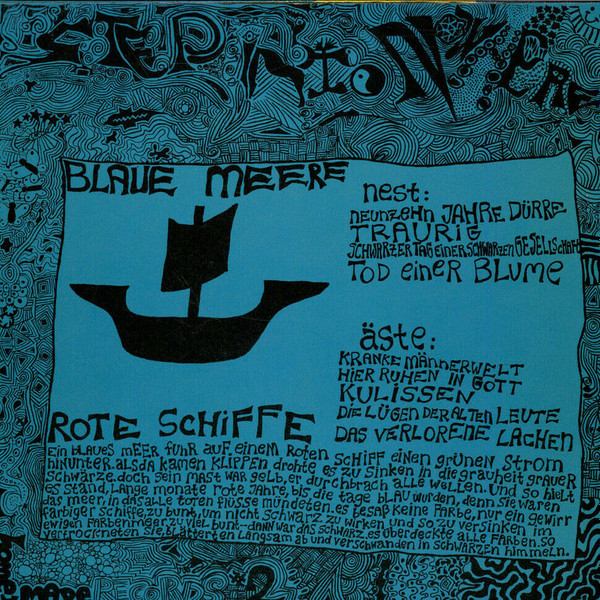 BLAUE MEERE
ROTE SCHIFFE
nest:
NEUNZEHN JAHRE DÜRRE
TRAURIG
SCHWARZER TAG EINER SCHWARZEN GESELLSCHAFT
TOD EINER BLUME
äste:
KRANKE MÄNNERWELT
HIER RUHEN IN GOTT
KULISSEN
DIE LÜGEN DER ALTEN LEUTE
DAS VERLORENE LACHEN
EIN BLAUES MEER FUHR AUF EINEM ROTEN SCHIFF EINEN GRÜNEN STROM
HINUNTER. ALS DA KAMEN KLIPPEN DROHTE ES ZU SINKEN IN DIE GRAUHEIT GRAUER
SCHWÄRZE. DOCH SEIN MAST WAR GELB, ER DURCHBRACH ALLE WELLEN. UND SO HIELT
ES STAND, LANGE MONATE ROTE JAHRE, BIS DIE TAGE BLAU WURDEN, DENN SIE WAREN
DAS MEER IN DAS ALLE TOTEN FLÜSSE MÜNDETEN. ES BESAß KEINE FARBE, NUR EIN GEWIRR
FARBIGER SCHIFFE, ZU BUNT, UM NICHT SCHWARZ ZU WIRKEN UND SO ZU VERSINKEN IM
EWIGEN FARBENMEER, ZU VIEL BUNT--DANN WAR DAS SCHWARZ. ES ÜBERDECKTE ALLE FARBEN, SO
VERTROCKNETEN SIE, BLÄTTERTEN LANGSAM AB UND VERSCHWANDEN IN SCHWARZEN HIMMELN.
MADE
RECORDS 2